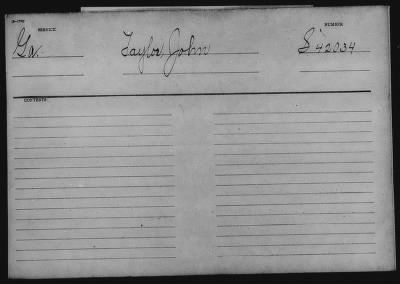 SERVICE
NUMBER
Ga.
Taylor John
S 42034
CONTENTS